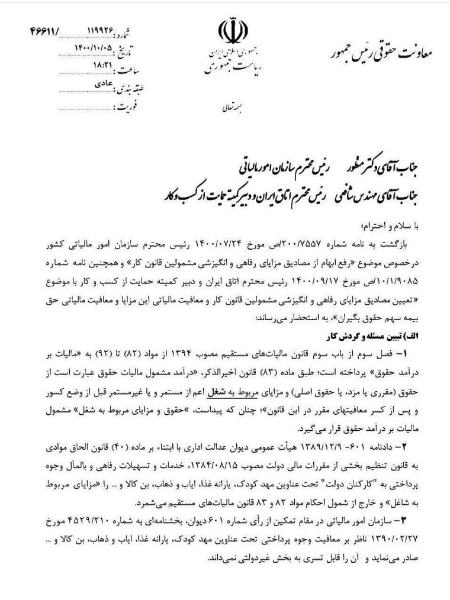 شماره: ۱۱۹۹۲۶ /۴۶۶۱۱
تاریخ: ۱۴۰۰/۱۰/۰۵
ساعت: ۱۸:۲۱
طبقه بندی: عادی
فوریت:
جمهوری اسلامی ایران
ریاست جمهوری
بسمه تعالی
معاونت حقوقی رئیس جمهور
جناب آقای دکتر منظور رئیس محترم سازمان امور مالیاتی
جناب آقای مهندس شافعی رئیس محترم اتاق ایران و دبیر کمیته حمایت از کسب و کار
با سلام و احترام؛
بازگشت به نامه شماره ۲۰۰/۷۵۵۷/ص مورخ ۱۴۰۰/۰۷/۲۴ رئیس محترم سازمان امور مالیاتی کشور
درخصوص موضوع «رفع ابهام از مصادیق مزایای رفاهی و انگیزشی مشمولین قانون کار» و همچنین نامه شماره
۱۰/۱/۹۰۸۵/ص مورخ ۱۴۰۰/۰۹/۱۷ رئیس محترم اتاق ایران و دبیر کمیته حمایت از کسب و کار با موضوع
«تعیین مصادیق مزایای رفاهی و انگیزشی مشمولین قانون کار و معافیت مالیاتی این مزایا و معافیت مالیاتی حق
بیمه سهم حقوق بگیران»، به استحضار می‌رساند:
الف) تبیین مسئله و گردش کار
۱- فصل سوم از باب سوم قانون مالیات‌های مستقیم مصوب ۱۳۹۴ از مواد (۸۲) تا (۹۲) به «مالیات بر
درآمد حقوق» پرداخته است؛ طبق ماده (۸۳) قانون اخیرالذکر، «درآمد مشمول مالیات حقوق عبارت است از
حقوق (مقرری یا مزد، یا حقوق اصلی) و مزایای مربوط به شغل اعم از مستمر و یا غیرمستمر قبل از وضع کسور
و پس از کسر معافیتهای مقرر در این قانون»؛ چنان که پیداست، «حقوق و مزایای مربوط به شغل» مشمول
مالیات بر درآمد حقوق قرار می‌گیرد.
۲- دادنامه ۶۰۱- ۱۳۸۹/۱۲/۹ هیأت عمومی دیوان عدالت اداری با ابتناء بر ماده (۴۰) قانون الحاق موادی
به قانون تنظیم بخشی از مقررات مالی دولت مصوب ۱۳۸۴/۰۸/۱۵، خدمات و تسهیلات رفاهی و بالمآل وجوه
پرداختی به "کارکنان دولت" تحت عناوین مهد کودک، یارانه غذا، ایاب و ذهاب، بن کالا و ... را «مزایای مربوط
به شاغل» و خارج از شمول احکام مواد ۸۲ و ۸۳ قانون مالیات‌های مستقیم می‌شمرد.
۳- سازمان امور مالیاتی در مقام تمکین از رأی شماره ۶۰۱ دیوان، بخشنامه‌ای به شماره ۴۵۲۹/۲۱۰ مورخ
۱۳۹۰/۰۲/۲۷ ناظر بر معافیت وجوه پرداختی تحت عناوین مهد کودک، یارانه غذا، ایاب و ذهاب، بن کالا و ...
صادر می‌نماید و آن را قابل تسری به بخش غیردولتی نمی‌داند.